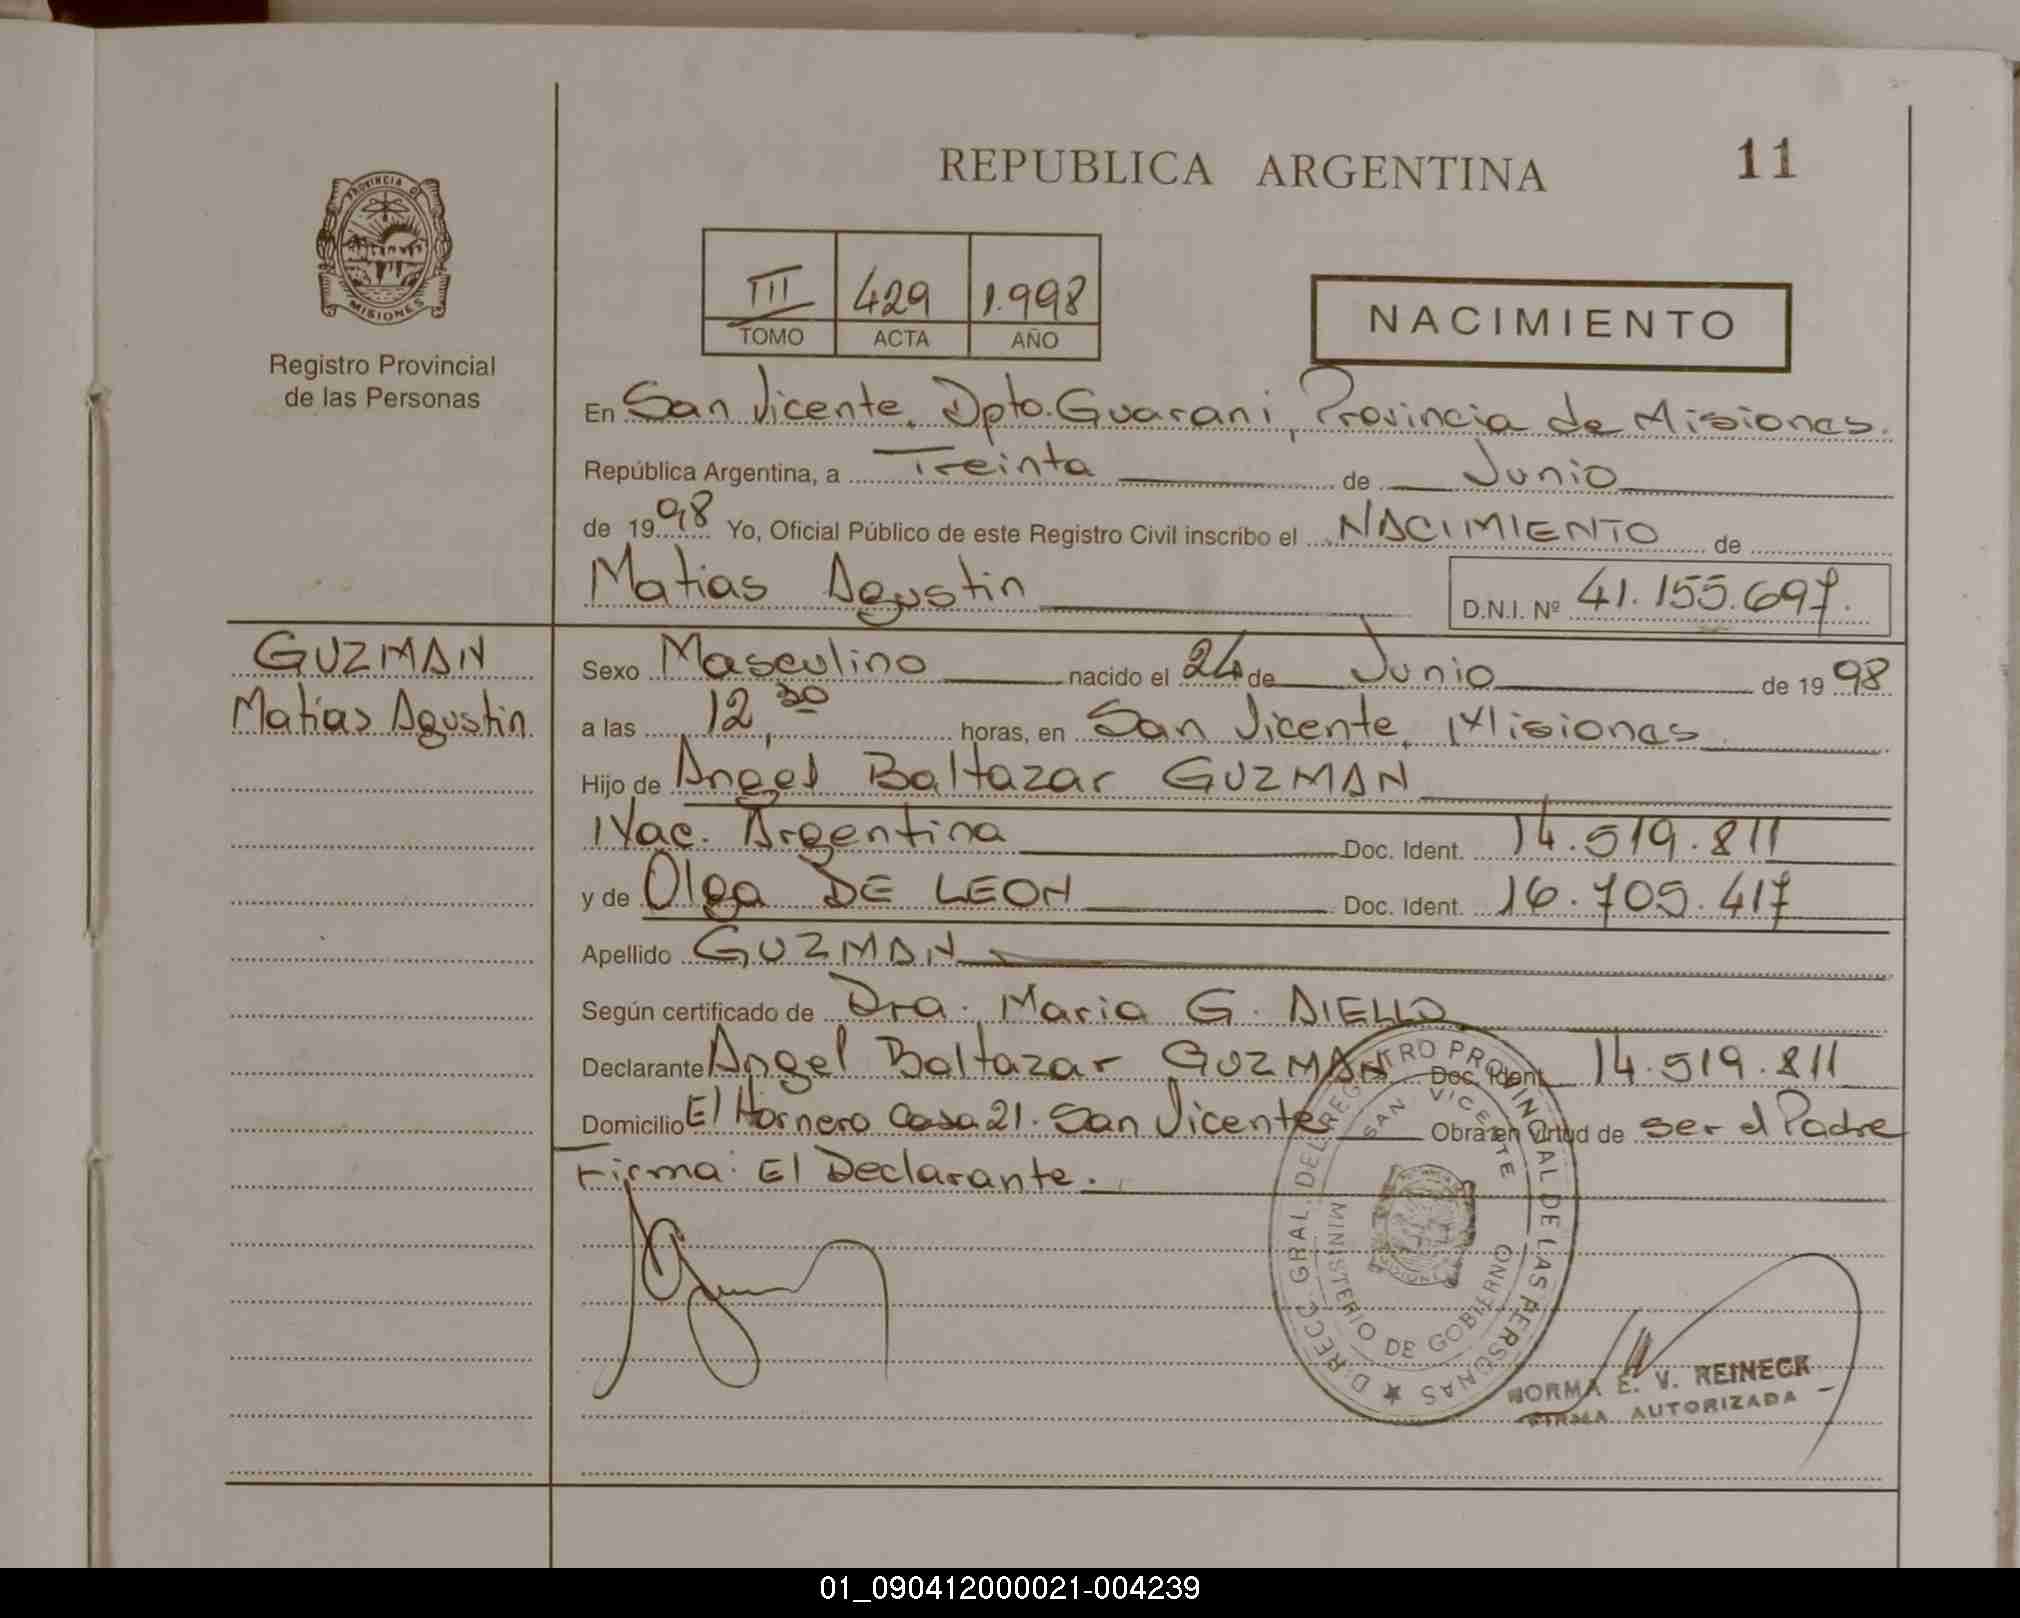 REPUBLICA ARGENTINA
11
PROVINCIA DE
MISIONES
Registro Provincial
de las Personas
III 429 1.998
TOMO ACTA AÑO
NACIMIENTO
En San Vicente, Dpto. Guarani, Provincia de Misiones.
República Argentina, a Treinta de Junio
de 1998 Yo, Oficial Público de este Registro Civil inscribo el NACIMIENTO de
Matias Agustin D.N.I. Nº 41.155.697.
GUZMAN
Matias Agustin
Sexo Masculino nacido el 24 de Junio de 1998
a las 12,30 horas, en San Vicente, Misiones
Hijo de Angel Baltazar GUZMAN
Nac. Argentina Doc. Ident. 14.519.811
y de Olga DE LEON Doc. Ident. 16.705.417
Apellido GUZMAN
Según certificado de Dra. Maria G. AIELLO
Declarante Angel Baltazar GUZMAN Doc. Ident. 14.519.811
Domicilio El Hornero Casa 21. San Vicente Obra en virtud de ser el Padre
Firma: El Declarante.
DIRECC. GRAL. DEL REGISTRO PROVINCIAL DE LAS PERSONAS
SAN VICENTE
MINISTERIO DE GOBIERNO
NORMA E. V. REINECK
FIRMA AUTORIZADA
01_090412000021-004239